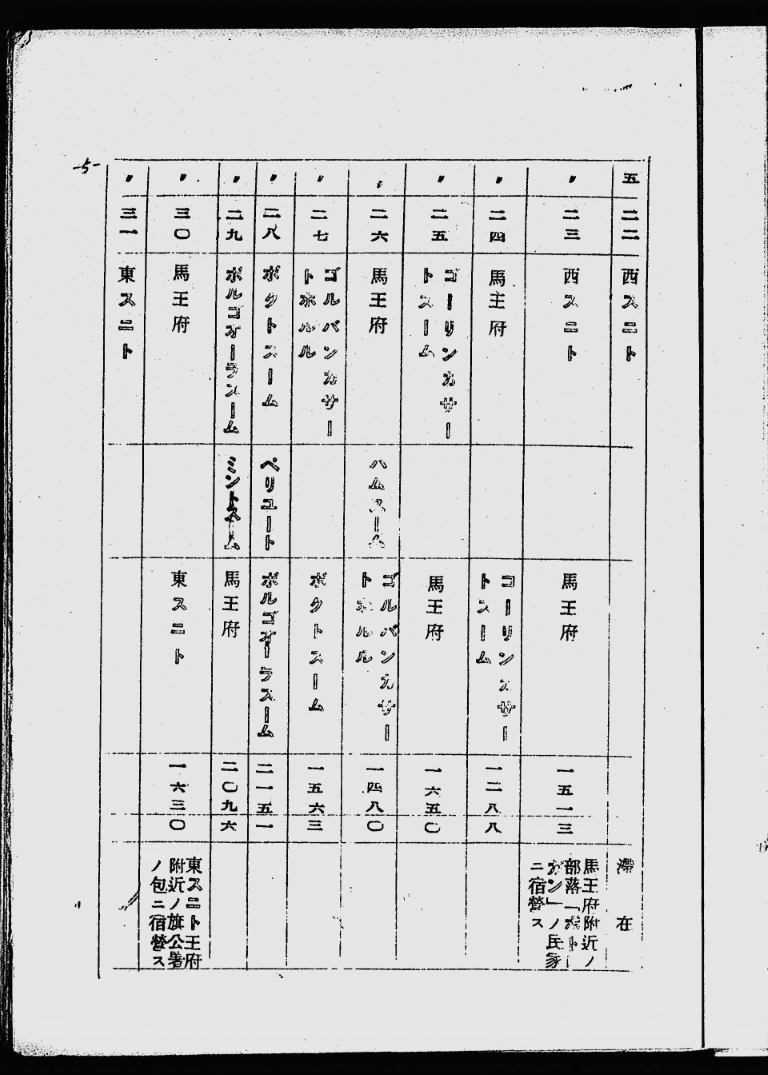 -5-
五 二二 西スニト 滞在
〃 二三 西スニト 馬王府 一五一三 馬王府附近ノ
部落「ボトー
ガン」ノ民家
ニ宿營ス
〃 二四 馬主府 コーリンカサー
トスーム 一二八八
〃 二五 コーリンカサー
トスーム 馬王府 一六五〇
〃 二六 馬王府 ハムスーム ゴルバンカサー
トホルル 一四八〇
〃 二七 ゴルバンカサー
トホルル ボクトスーム 一五六三
〃 二八 ボクトスーム ペリユート ボルゴオーラスーム 二一五一
〃 二九 ボルゴオーラスーム ミントスーム 馬王府 二〇九六
〃 三〇 馬王府 東スニト 一六三〇 東スニト王府
附近ノ旗公署
ノ包ニ宿營ス
〃 三一 東スニト